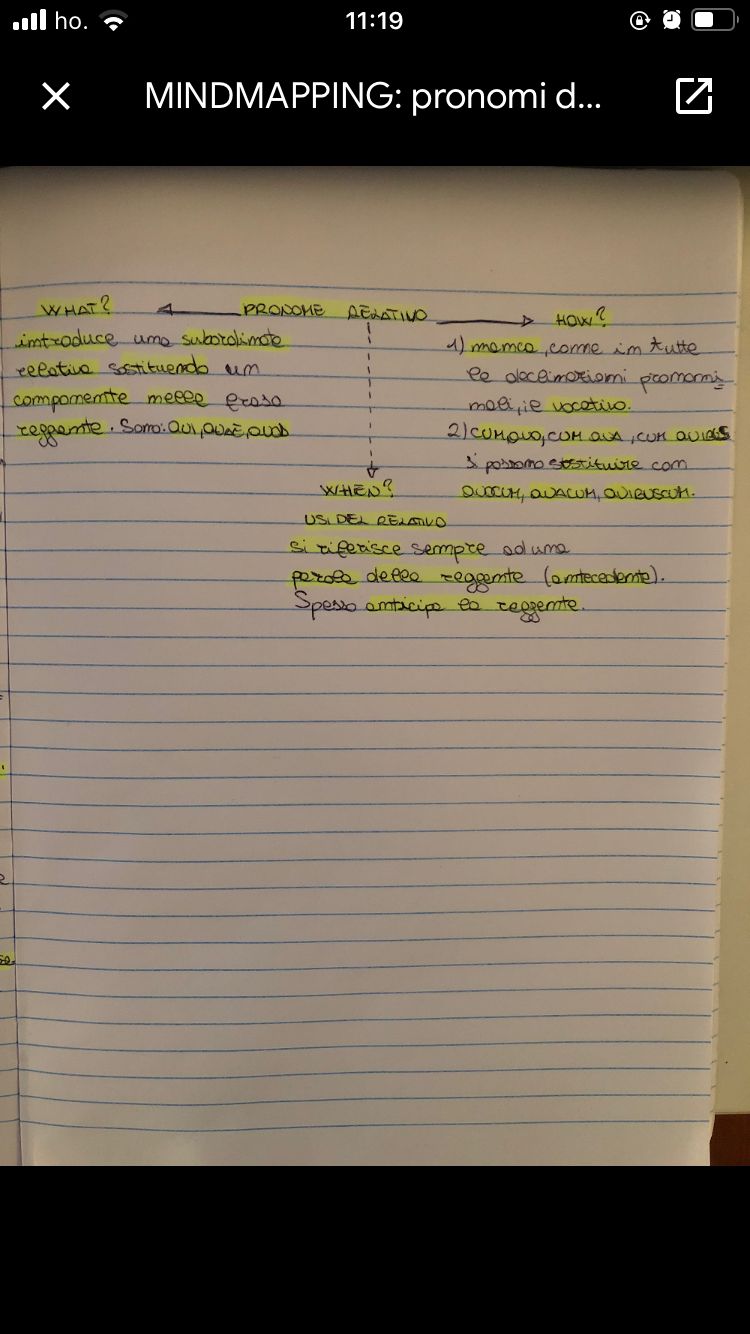 ho.
11:19
MINDMAPPING: pronomi d...
WHAT?
PRONOME RELATIVO
HOW?
introduce una subordinate
relativa sostituendo un
componente nella frase
reggente. Sono: QUI, QUAE, QUOD
1) manca, come in tutte
le declinazioni pronomi
nali, il vocativo.
2) CUM QUO, CUM QUA, CUM QUIBUS
si possono sostituire con
QUOCUM, QUACUM, QUIBUSCUM.
WHEN?
USI DEL RELATIVO
si riferisce sempre ad una
parola della reggente (antecedente).
Spesso anticipa la reggente.